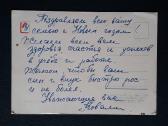 Поздравляем всю вашу
семью с Новым годом
Желаем всем вам
здоровья счастья и успехов
в учёбе и работе
Желаем чтобы ваш
сын и внук быстро рос
и не болел.
Уважающие вас